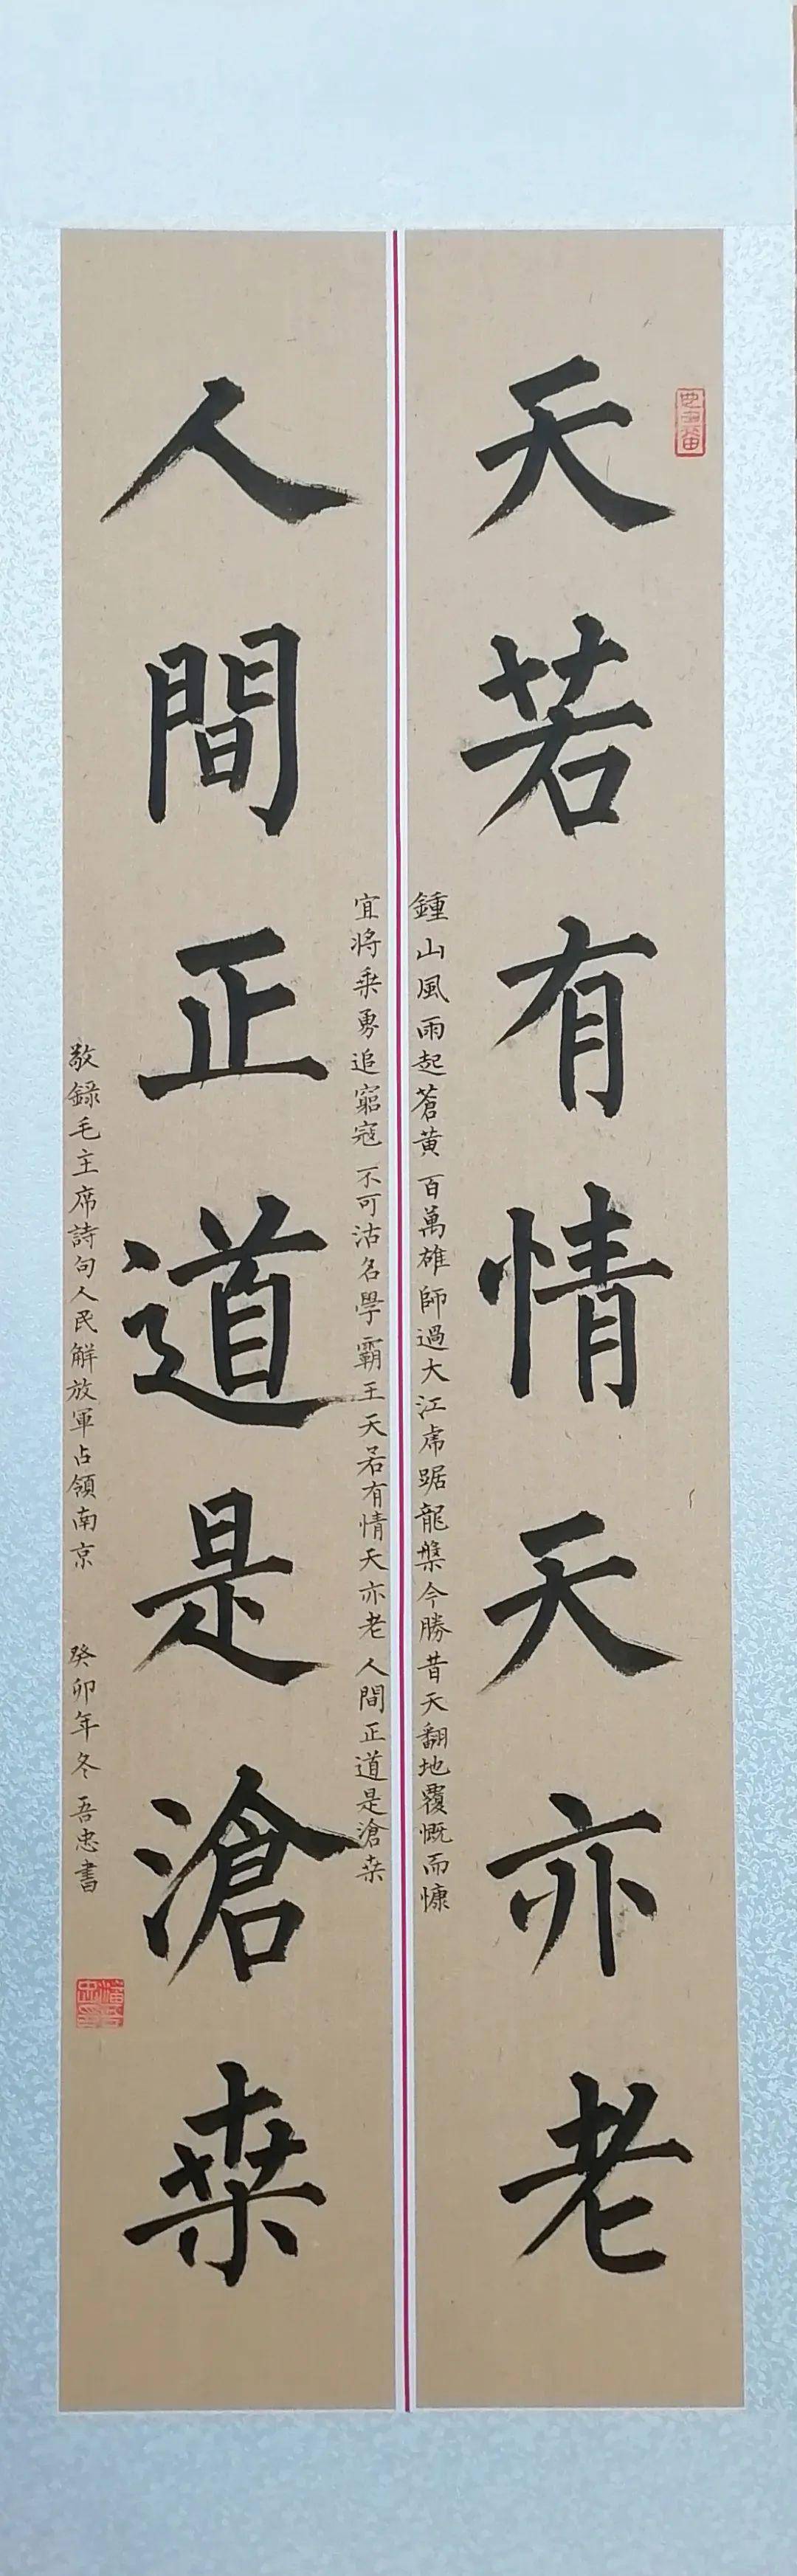 天若有情天亦老
鍾山風雨起蒼黄 百萬雄師過大江 虎踞龍盤今勝昔 天翻地覆慨而慷
宜將乗勇追窮寇 不可沽名學霸王 天若有情天亦老 人間正道是滄桒
人間正道是滄桒
敬録毛主席詩句人民解放軍占領南京 癸卯年冬 吾忠書